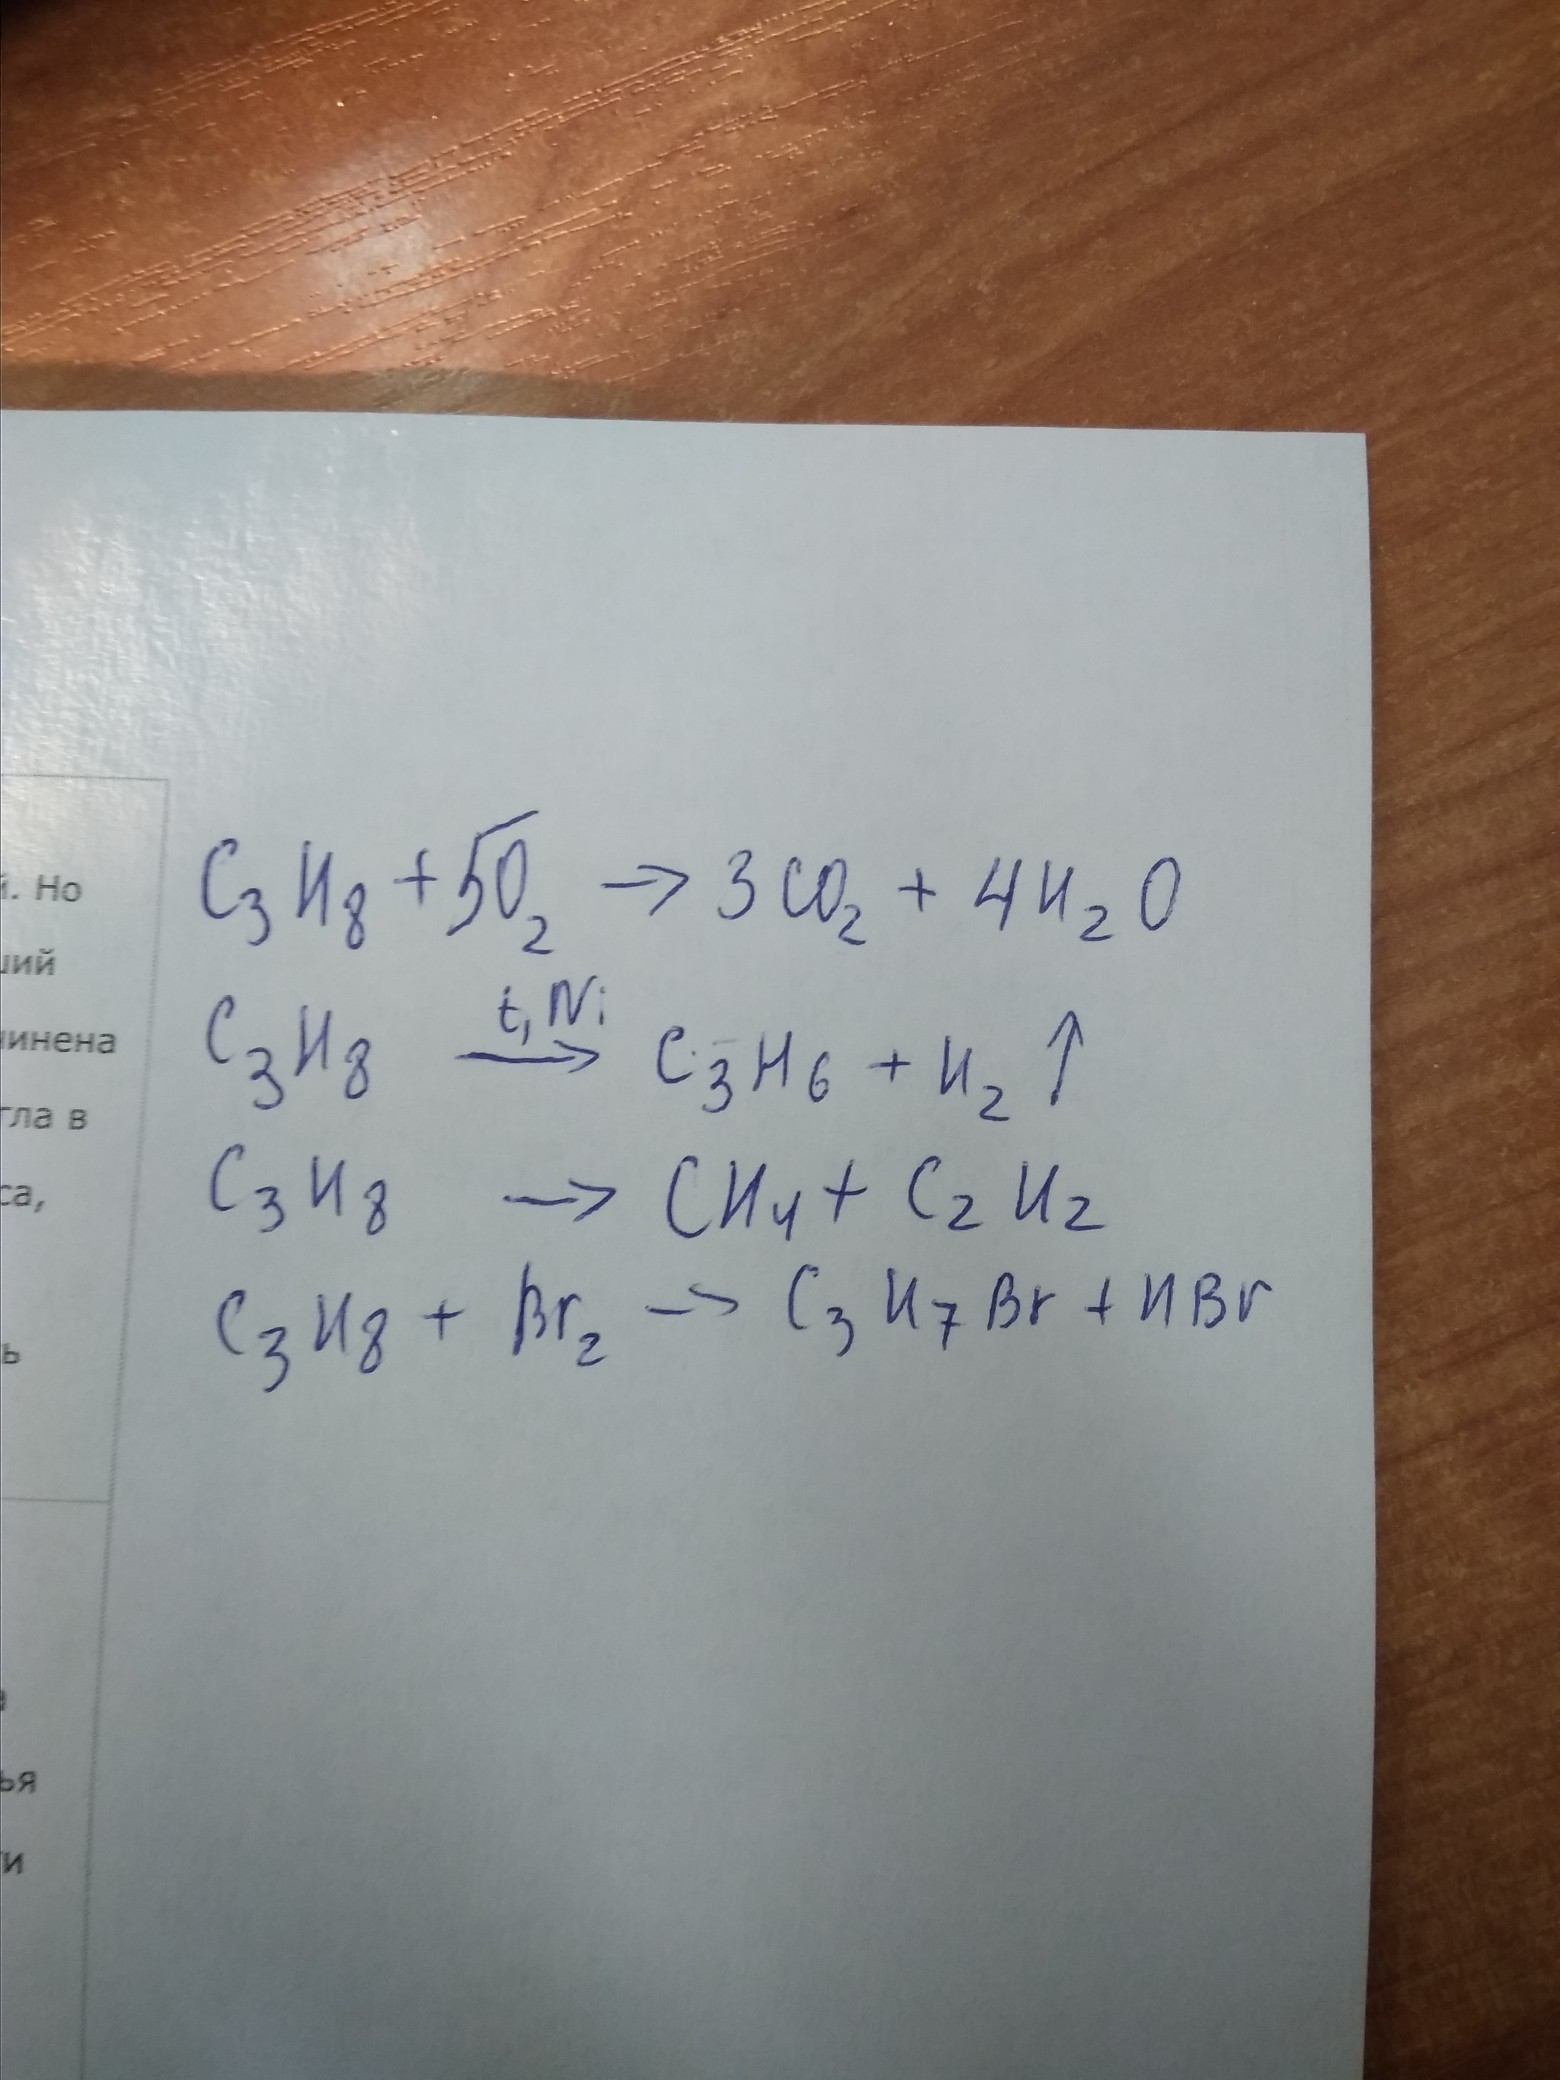 й. Но
ший
чинена
гла в
са,
ь
ья
ти
C₃H₈ + 5O₂ → 3CO₂ + 4H₂O
C₃H₈ t, Ni → C₃H₆ + H₂ ↑
C₃H₈ → CH₄ + C₂H₂
C₃H₈ + Br₂ → C₃H₇Br + HBr